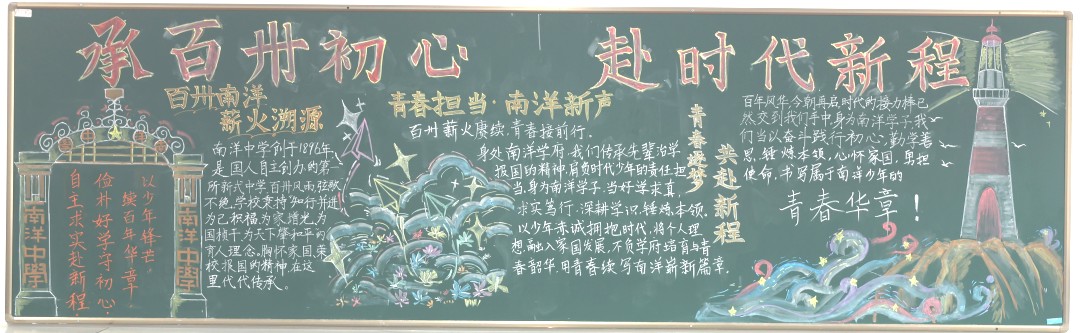 承百卅初心 赴时代新程
南洋中學
以少年锋芒，
续百年华章
俭朴好学守初心，
自主求实赴新程
南洋中學
百卅南洋
薪火溯源
南洋中学创于1896年，
是国人自主创办的第一
所新式中学，百卅风雨弦歌
不绝，学校秉持知行并进
为己积福，为家增光，为
国桢干，为天下肇和平的
育人理念。胸怀家国，荣
校报国的精神在这
里代代传承。
青春担当·南洋新声
百卅薪火赓续，青春接前行。
身处南洋学府，我们传承先辈治学
报国的精神，肩负时代少年的责任担
当。身为南洋学子，当好学求真，
求实笃行，深耕学识，锤炼本领。
以少年赤诚拥抱时代，将个人理
想融入家国发展，不负学府培育与青
春韶华，用青春续写南洋崭新篇章。
青春逐梦
共赴新程
百年风华，今朝再启，时代的接力棒已
然交到我们手中，身为南洋学子，我
们当以奋斗践行初心，勤学善
思，锤炼本领，心怀家国，勇担
使命，书写属于南洋少年的
青春华章！